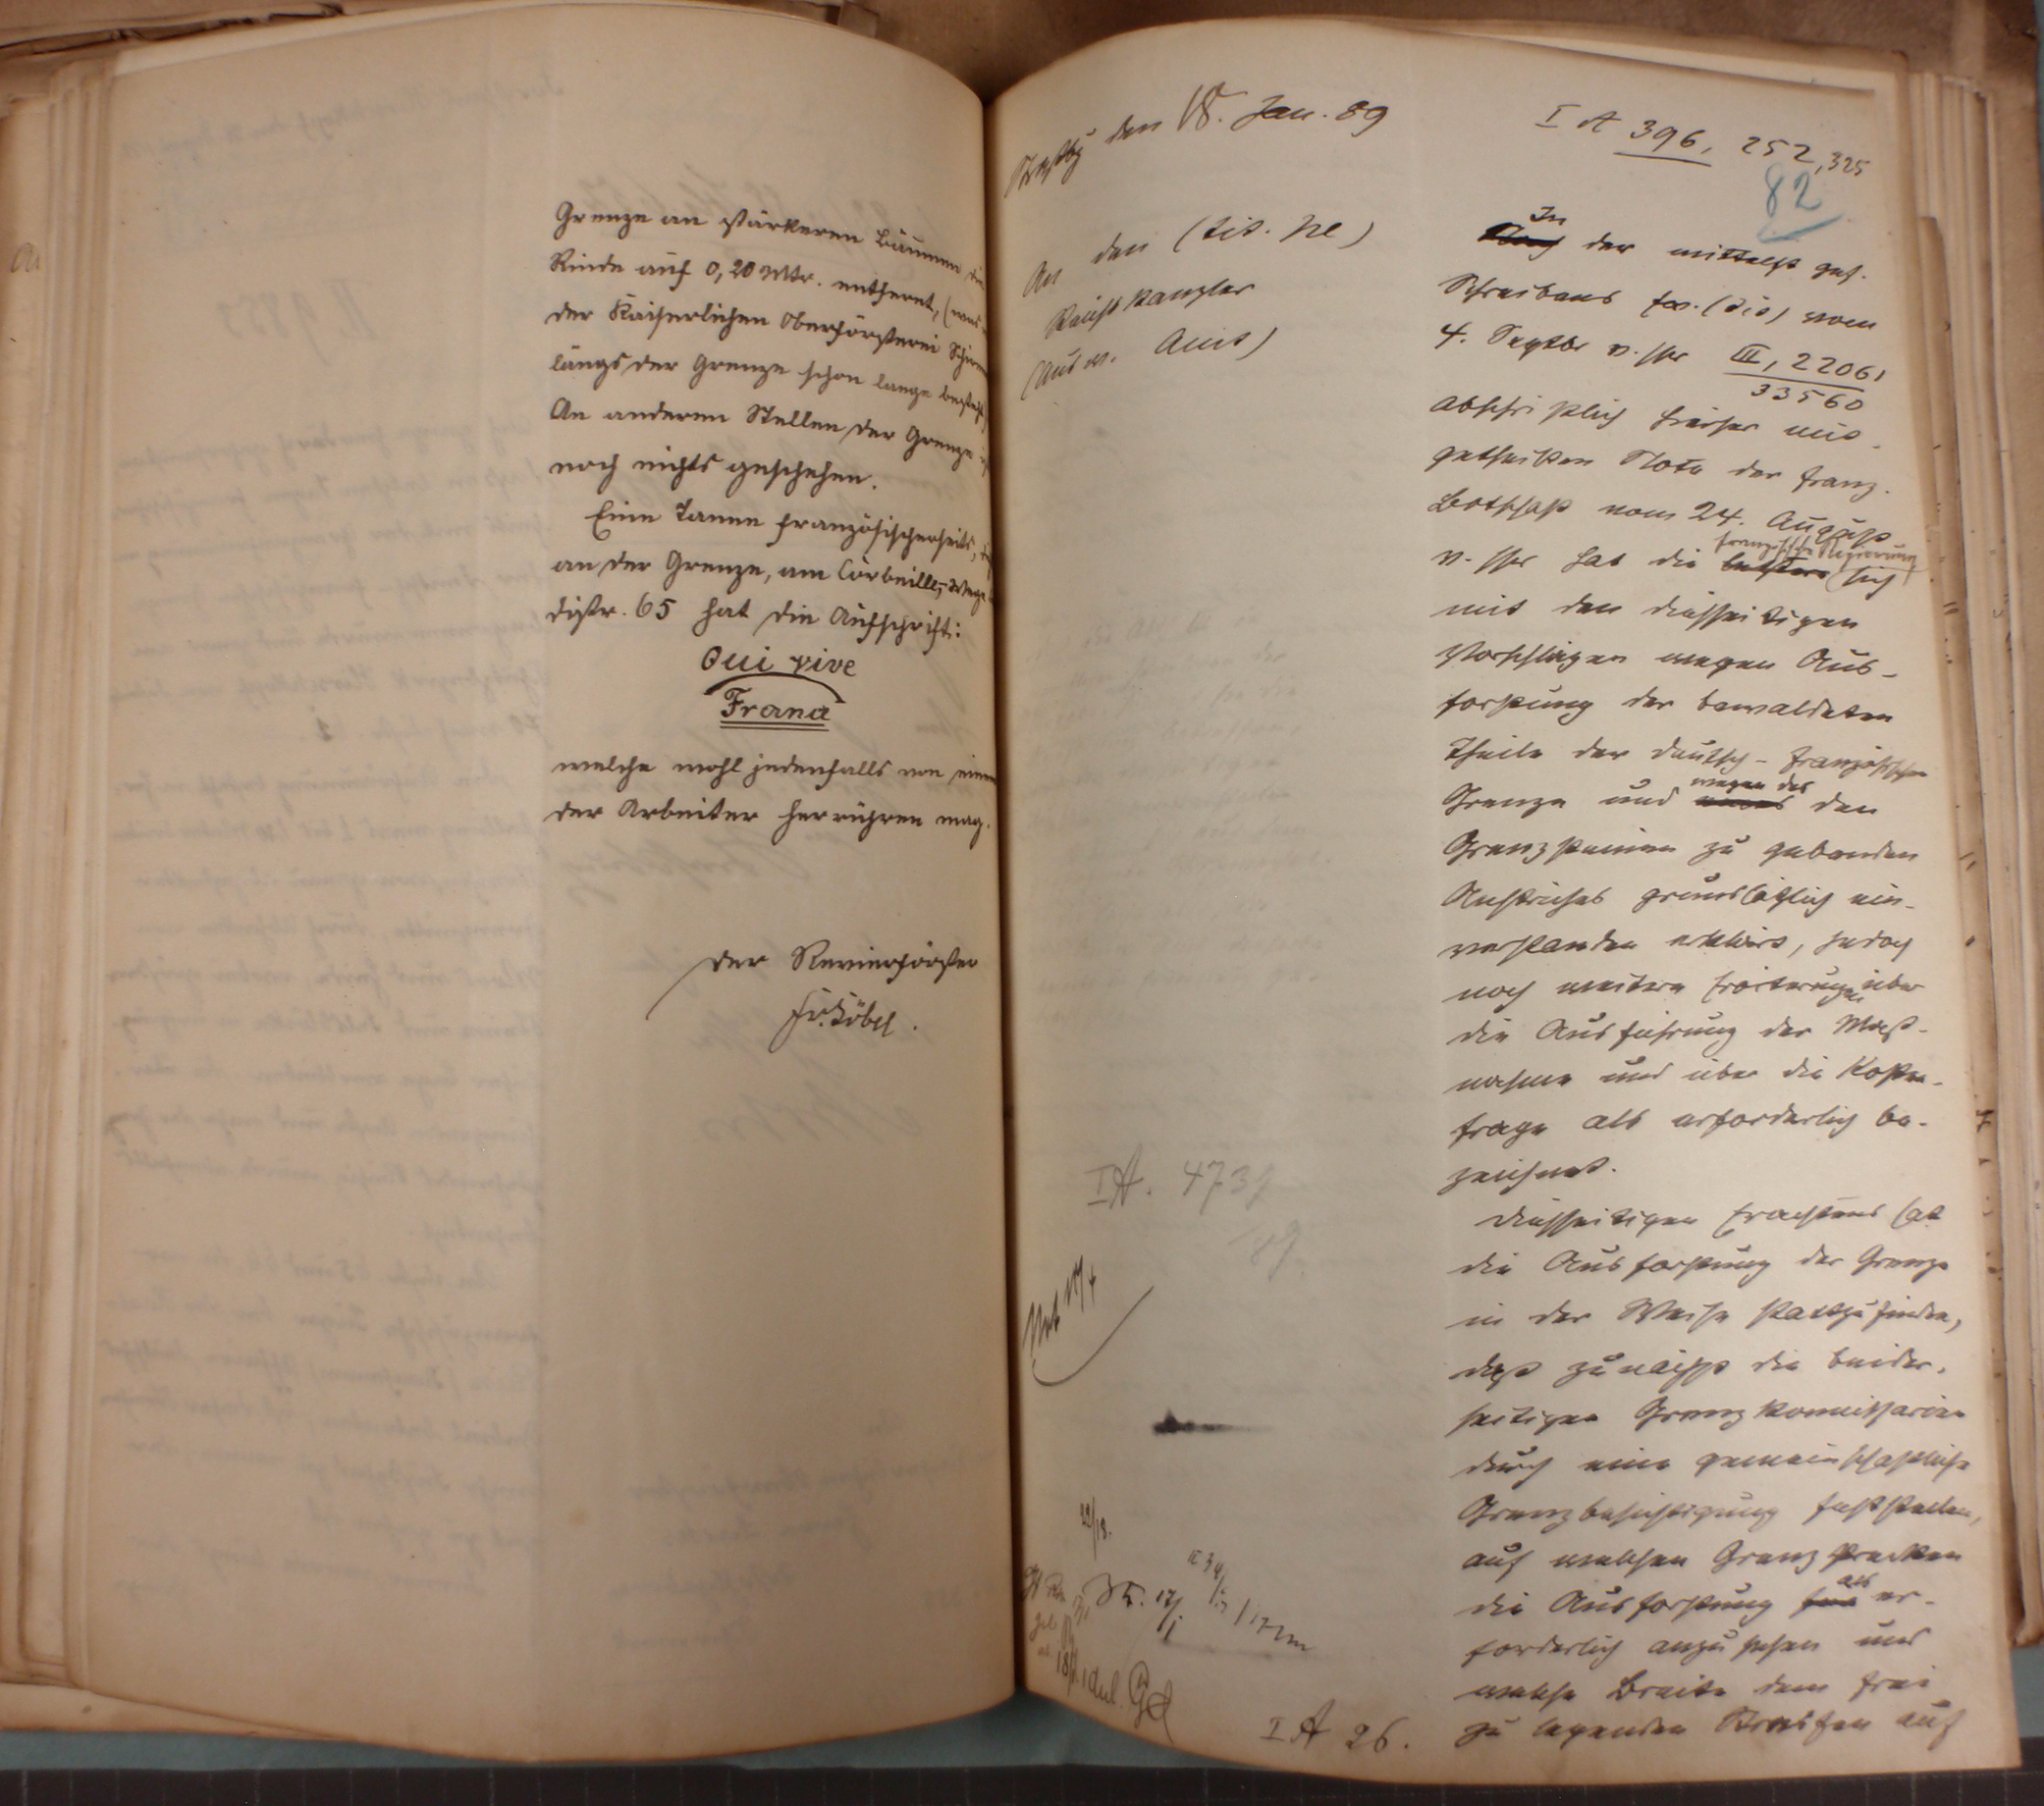 Grenze an stärkeren Bäumen die
Rinde auf 0,20 Mtr. entfernt, (was in
der Kaiserlichen Oberförsterei Schirm
längs der Grenze schon lange besteht)
An anderen Stellen der Grenze ist
noch nichts geschehen.
Eine Tanne französischerseits, dicht
an der Grenze, am Corbeille-Wege
Distr. 65 hat die Aufschrift:
Qui vive
Franc
welche wohl jedenfalls von einem
der Arbeiter herrühren mag.
Der Revierförster
Strßbg den 18. Jan. 89
An den (tit. pl)
Reichskanzler
(Ausw. Amt)
I A. 473
89
I A 26.
I A 396, 252, 325
82
In der mittelst gef.
Schreibens vom
4. Septbr v. Jhr III, 22061
33560
abschriftlich hierher mit-
getheilten Note der franz.
Botschaft vom 24. August
v. Jhr hat die französische Regierung sich
mit den diesseitigen
Vorschlägen wegen Aus-
forstung der bewaldeten
Theile der deutsch-französischen
Grenze und wegen des den
Grenzsteinen zu gebenden
Anstriches grundsätzlich ein-
verstanden erklärt, jedoch
noch weitere Erörterungen über
die Ausführung der Maß-
nahme und über die Kosten-
frage als erforderlich be-
zeichnet.
Diesseitigen Erachtens hat
die Ausforstung der Grenze
in der Weise stattzufinden,
daß zunächst die beider-
seitigen Grenzkommissarien
durch eine gemeinschaftliche
Grenzbesichtigung feststellen,
auf welchen Grenzstrecken
die Ausforstung als er-
forderlich anzusehen und
welche Breite dem frei
zu legenden Streifen auf